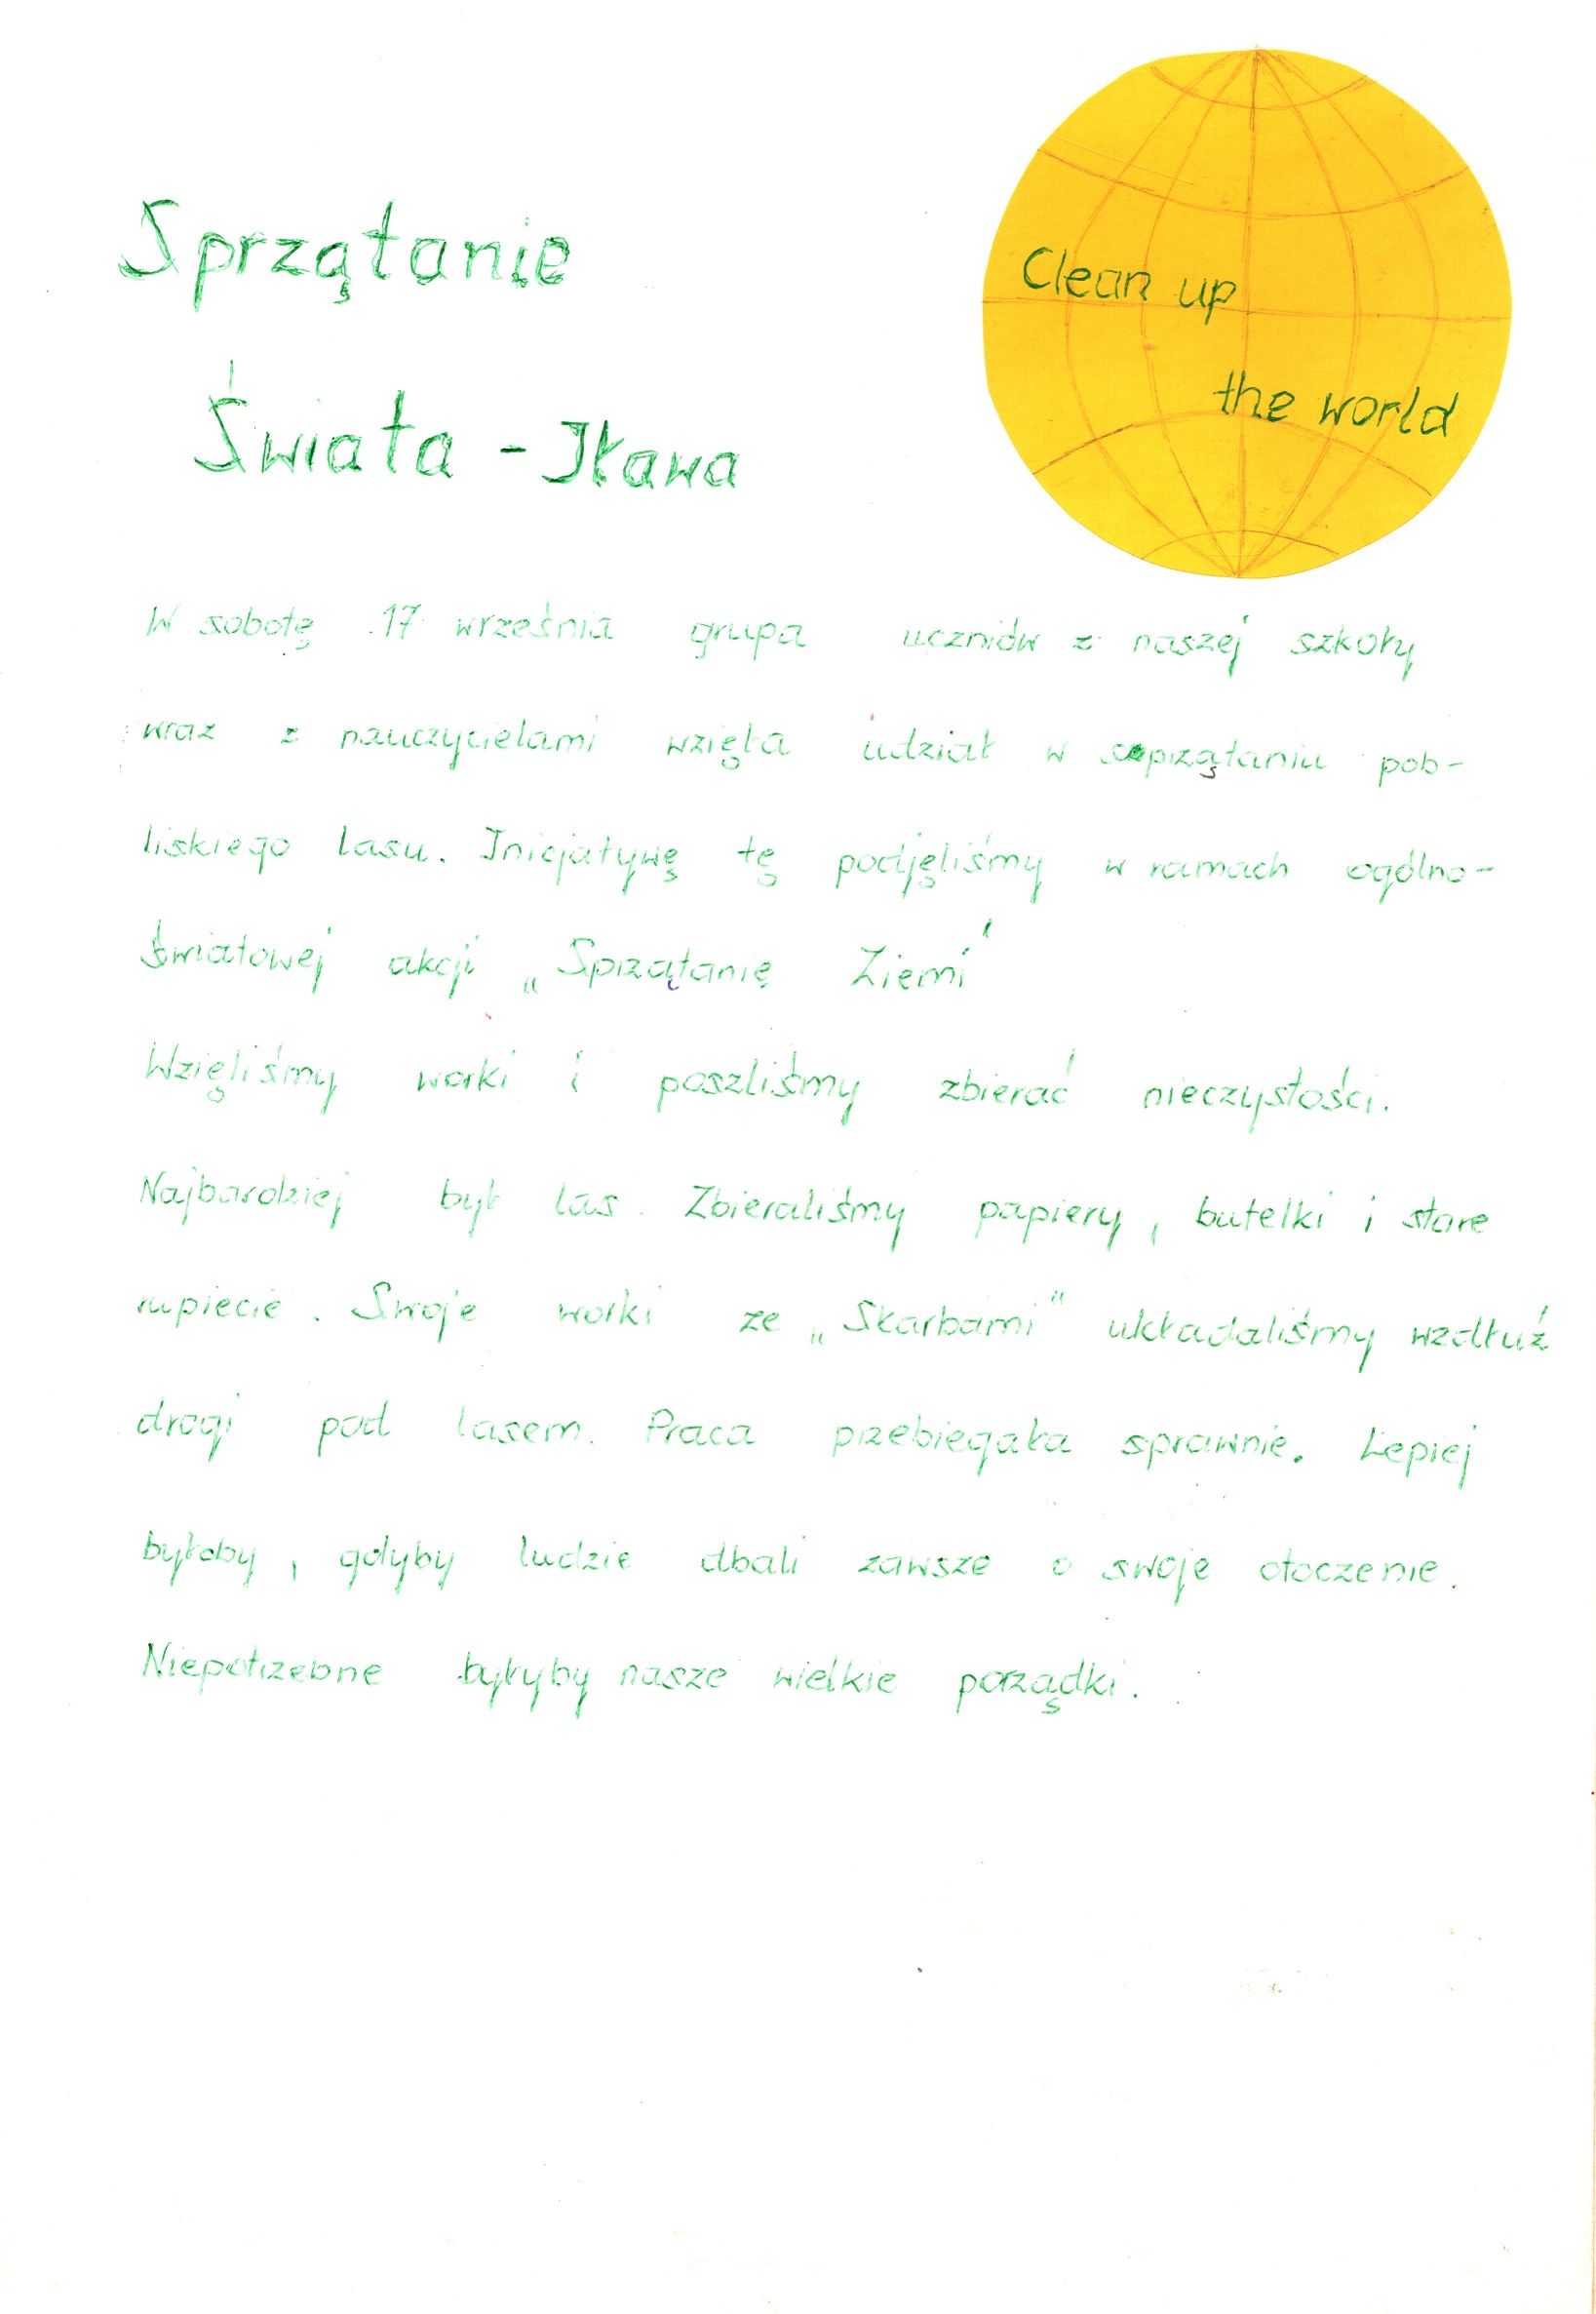 Sprzątanie
Świata - Iława
Clean up
the world
W sobotę 17 września grupa uczniów z naszej szkoły
wraz z nauczycielami wzięła udział w sprzątaniu pob-
liskiego lasu. Inicjatywę tę podjęliśmy w ramach ogólno-
światowej akcji „Sprzątanię Ziemi"
Wzięliśmy worki i poszliśmy zbierać nieczystości.
Najbardziej był las. Zbieraliśmy papiery, butelki i stare
rupiecie. Swoje worki ze „Skarbami" układaliśmy wzdłuż
drogi pod lasem. Praca przebiegała sprawnie. Lepiej
byłoby, gdyby ludzie dbali zawsze o swoje otoczenie.
Niepotrzebne byłyby nasze wielkie porządki.